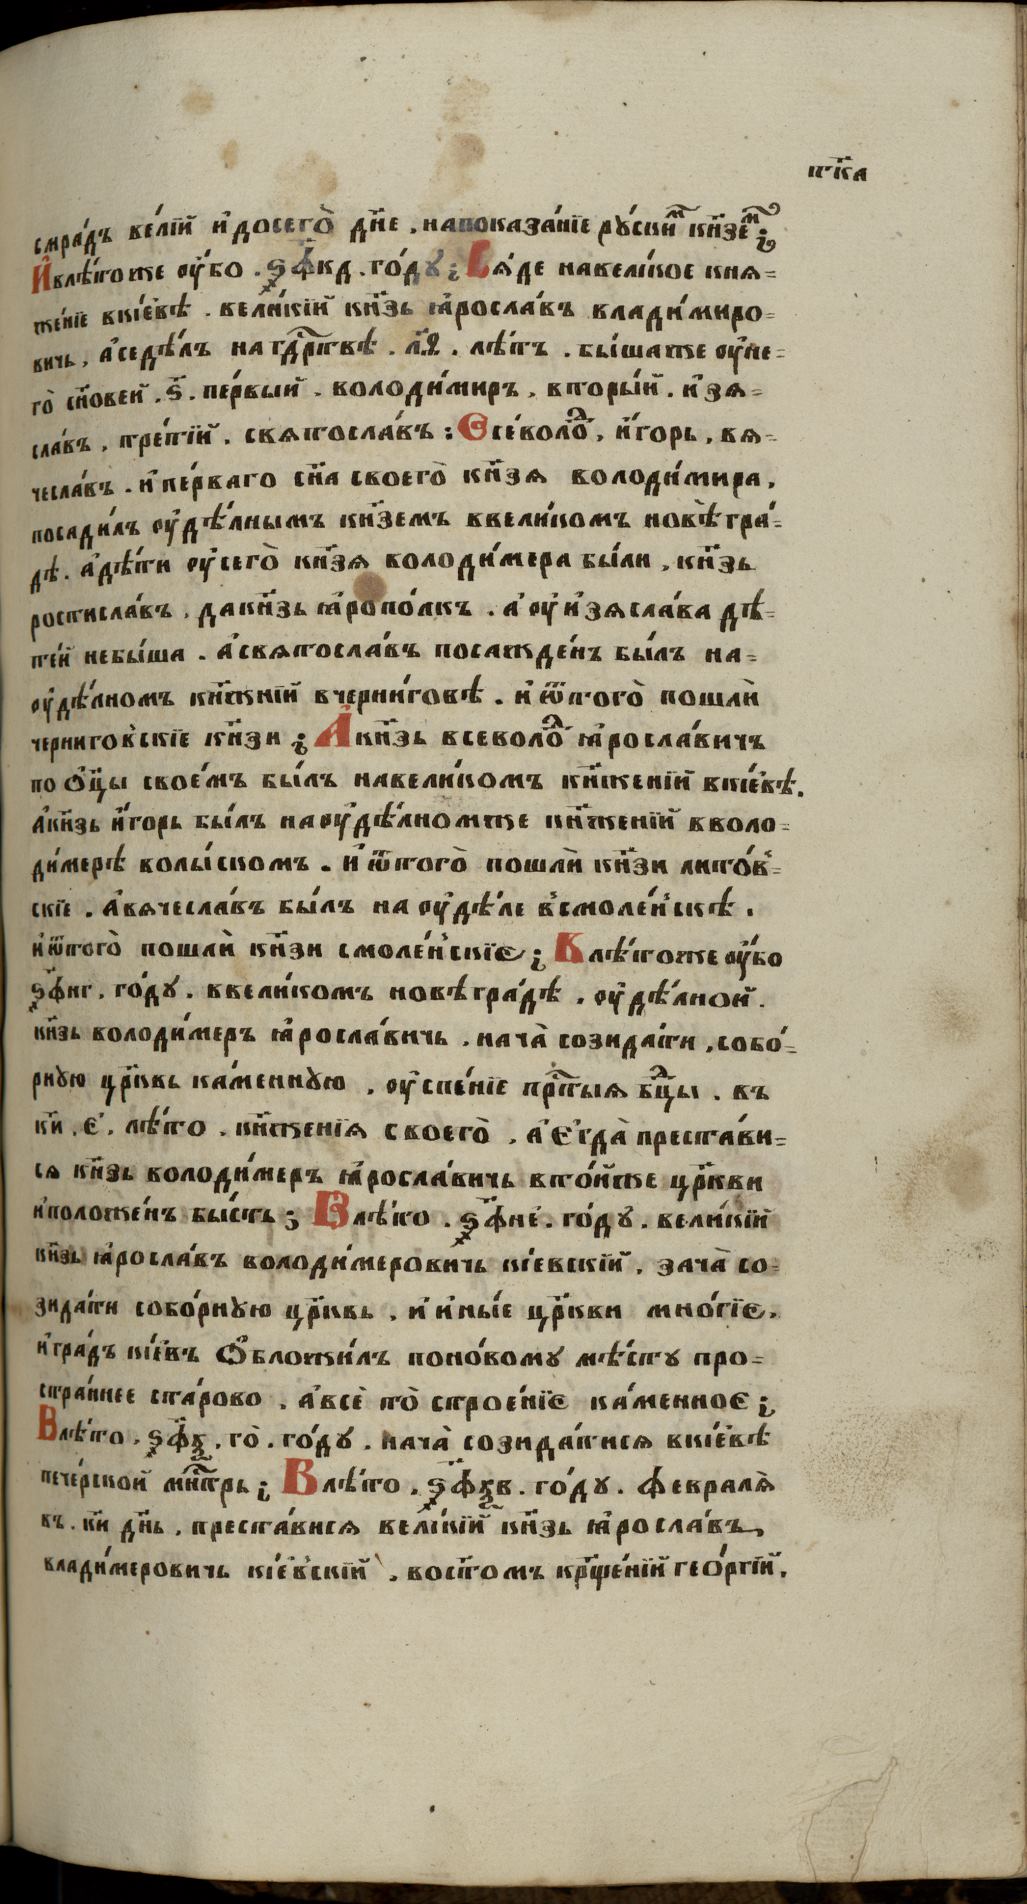 рк҃а
смра́дъ ве́лїй и҆досего̀ дн҃е . напоказа́нїе ру́скиⷨ кн҃зеⷨ ;
И҆влѣ́тоже оу҆́бо . ѕ҂фк҃д . го́ду ; Ся́де навели́кое кня=
же́нїе вкі́евѣ . вели́кїй кн҃зь ꙗ҆росла́въ влади́миро=
вичь , а҆седѣ́лъ на гдⷭ҇ртвѣ . л҃ѳ . лѣ́тъ . бы́шаже оу҆не=
го̀ сн҃овей . ѕ҃ . пе́рвый . володи́миръ , вторы́й . и҆зя=
сла́въ , тре́тїй . святосла́въ : Всеволоⷣ , и҆́горь , вя=
чесла́въ . и҆пе́рваго сн҃а своего̀ кн҃зя володи́мира ,
посади́лъ оу҆дѣ́лнымъ кн҃земъ ввели́комъ новѣгра́=
дѣ . а҆дѣ́ти оу҆сего̀ кн҃зя володи́мера бы́ли , кн҃зь
ростисла́въ , дакн҃зь ꙗ҆ропо́лкъ . а҆ оу҆и҆зясла́ва дѣ=
те́й небы́ша . а҆святосла́въ посажде́нъ бы́лъ на=
оу҆дѣ́лномъ кн҃жнїй вчерни́говѣ . и҆ ѿтого̀ пошлѝ
черниго́вскїе кн҃зи ; А҆кн҃зь всеволоⷣ ꙗ҆росла́вичъ
по ѻ҆ц҃ы свое́мъ бы́лъ навели́комъ кн҃женїй вкі́евѣ .
а҆кн҃зь и҆́горь бы́лъ наоу҆дѣ́лномже кн҃женїй вволо=
ди́мерѣ волы́скомъ . и҆ ѿтого̀ пошлѝ кн҃зи лито́в=
скїе . а҆вячесла́въ бы́лъ на оу҆дѣ́ле всмоле́нскѣ .
и҆ѿтого̀ пошлѝ кн҃зи смоле́нскїе ; Влѣ́тоже оу҆́бо
ѕ҂фн҃г . го́ду . ввели́комъ новѣгра́дѣ . оу҆дѣ́лной .
кн҃зь володи́меръ ꙗ҆росла́вичь . нача̀ созида́ти , собо́=
рную цр҃ковь ка́менную , оу҆спе́нїе прⷭ҇тыя бцⷣы . въ
к҃и . е҃ . лѣ́то . кн҃женїя своего̀ , а҆ е҆гда̀ преста́ви=
ся кн҃зь володи́меръ ꙗ҆росла́вичь вто́йже цр҃кви
и҆положе́нъ бы́сть ; Влѣ́то . ѕ҂фн҃е . го́ду . вели́кїй
кн҃зь ꙗ҆росла́въ володи́меровичь кі́евскїй . зача̀ со=
зида́ти собо́рную цр҃ковь , и҆ и҆ны́е цр҃кви мно́гїе ,
и҆гра́дъ кі́евъ ѻ҆бложи́лъ поно́вому мѣ́сту про=
стра́ннее ста́рово . а҆всѐ то̀ строе́нїе ка́менное ;
Влѣ́то . ѕ҂фѯ҃ . го̀ . го́ду . нача̀ созида́тися вкі́евѣ
пече́рской мнⷭ҇трь ; Влѣ́то . ѕ҂фѯ҃в . го́ду . февраля̀
въ . к҃и дн҃ь , преста́вися вели́кїй кн҃зь ꙗ҆росла́въ ,
влади́меровичь кі́евскїй , восто́мъ крⷳ҇щенїй гео́ргїй .